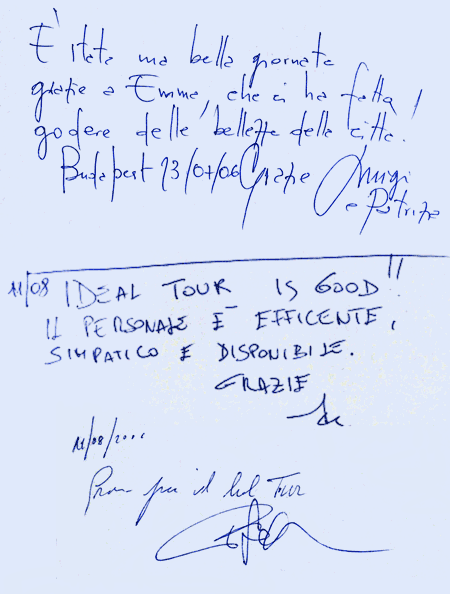 È stata una bella giornata
grazie a Emma, che ci ha fatta
godere delle bellezze della città!
Budapest 13/07/06 Grazie Luigi
e Patrizia
11/08 IDEAL TOUR IS GOOD!!
IL PERSONALE E' EFFICENTE,
SIMPATICO E DISPONIBILE.
GRAZIE
11/08/2...
per il bel Tour